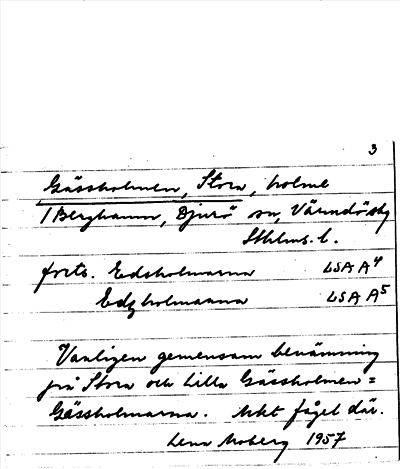 3
Gässholmen, Stora, holme
/ Berghamn, Djurö sn, Värmdö skg
Sthlms. l.
forts. Edsholmarna LSA A4
Edzholmarna LSA A5
Vanligen gemensam benämning
på Stora och Lilla Gässholmen =
Gässholmarna. Mkt fågel där.
Lena Moberg 1957